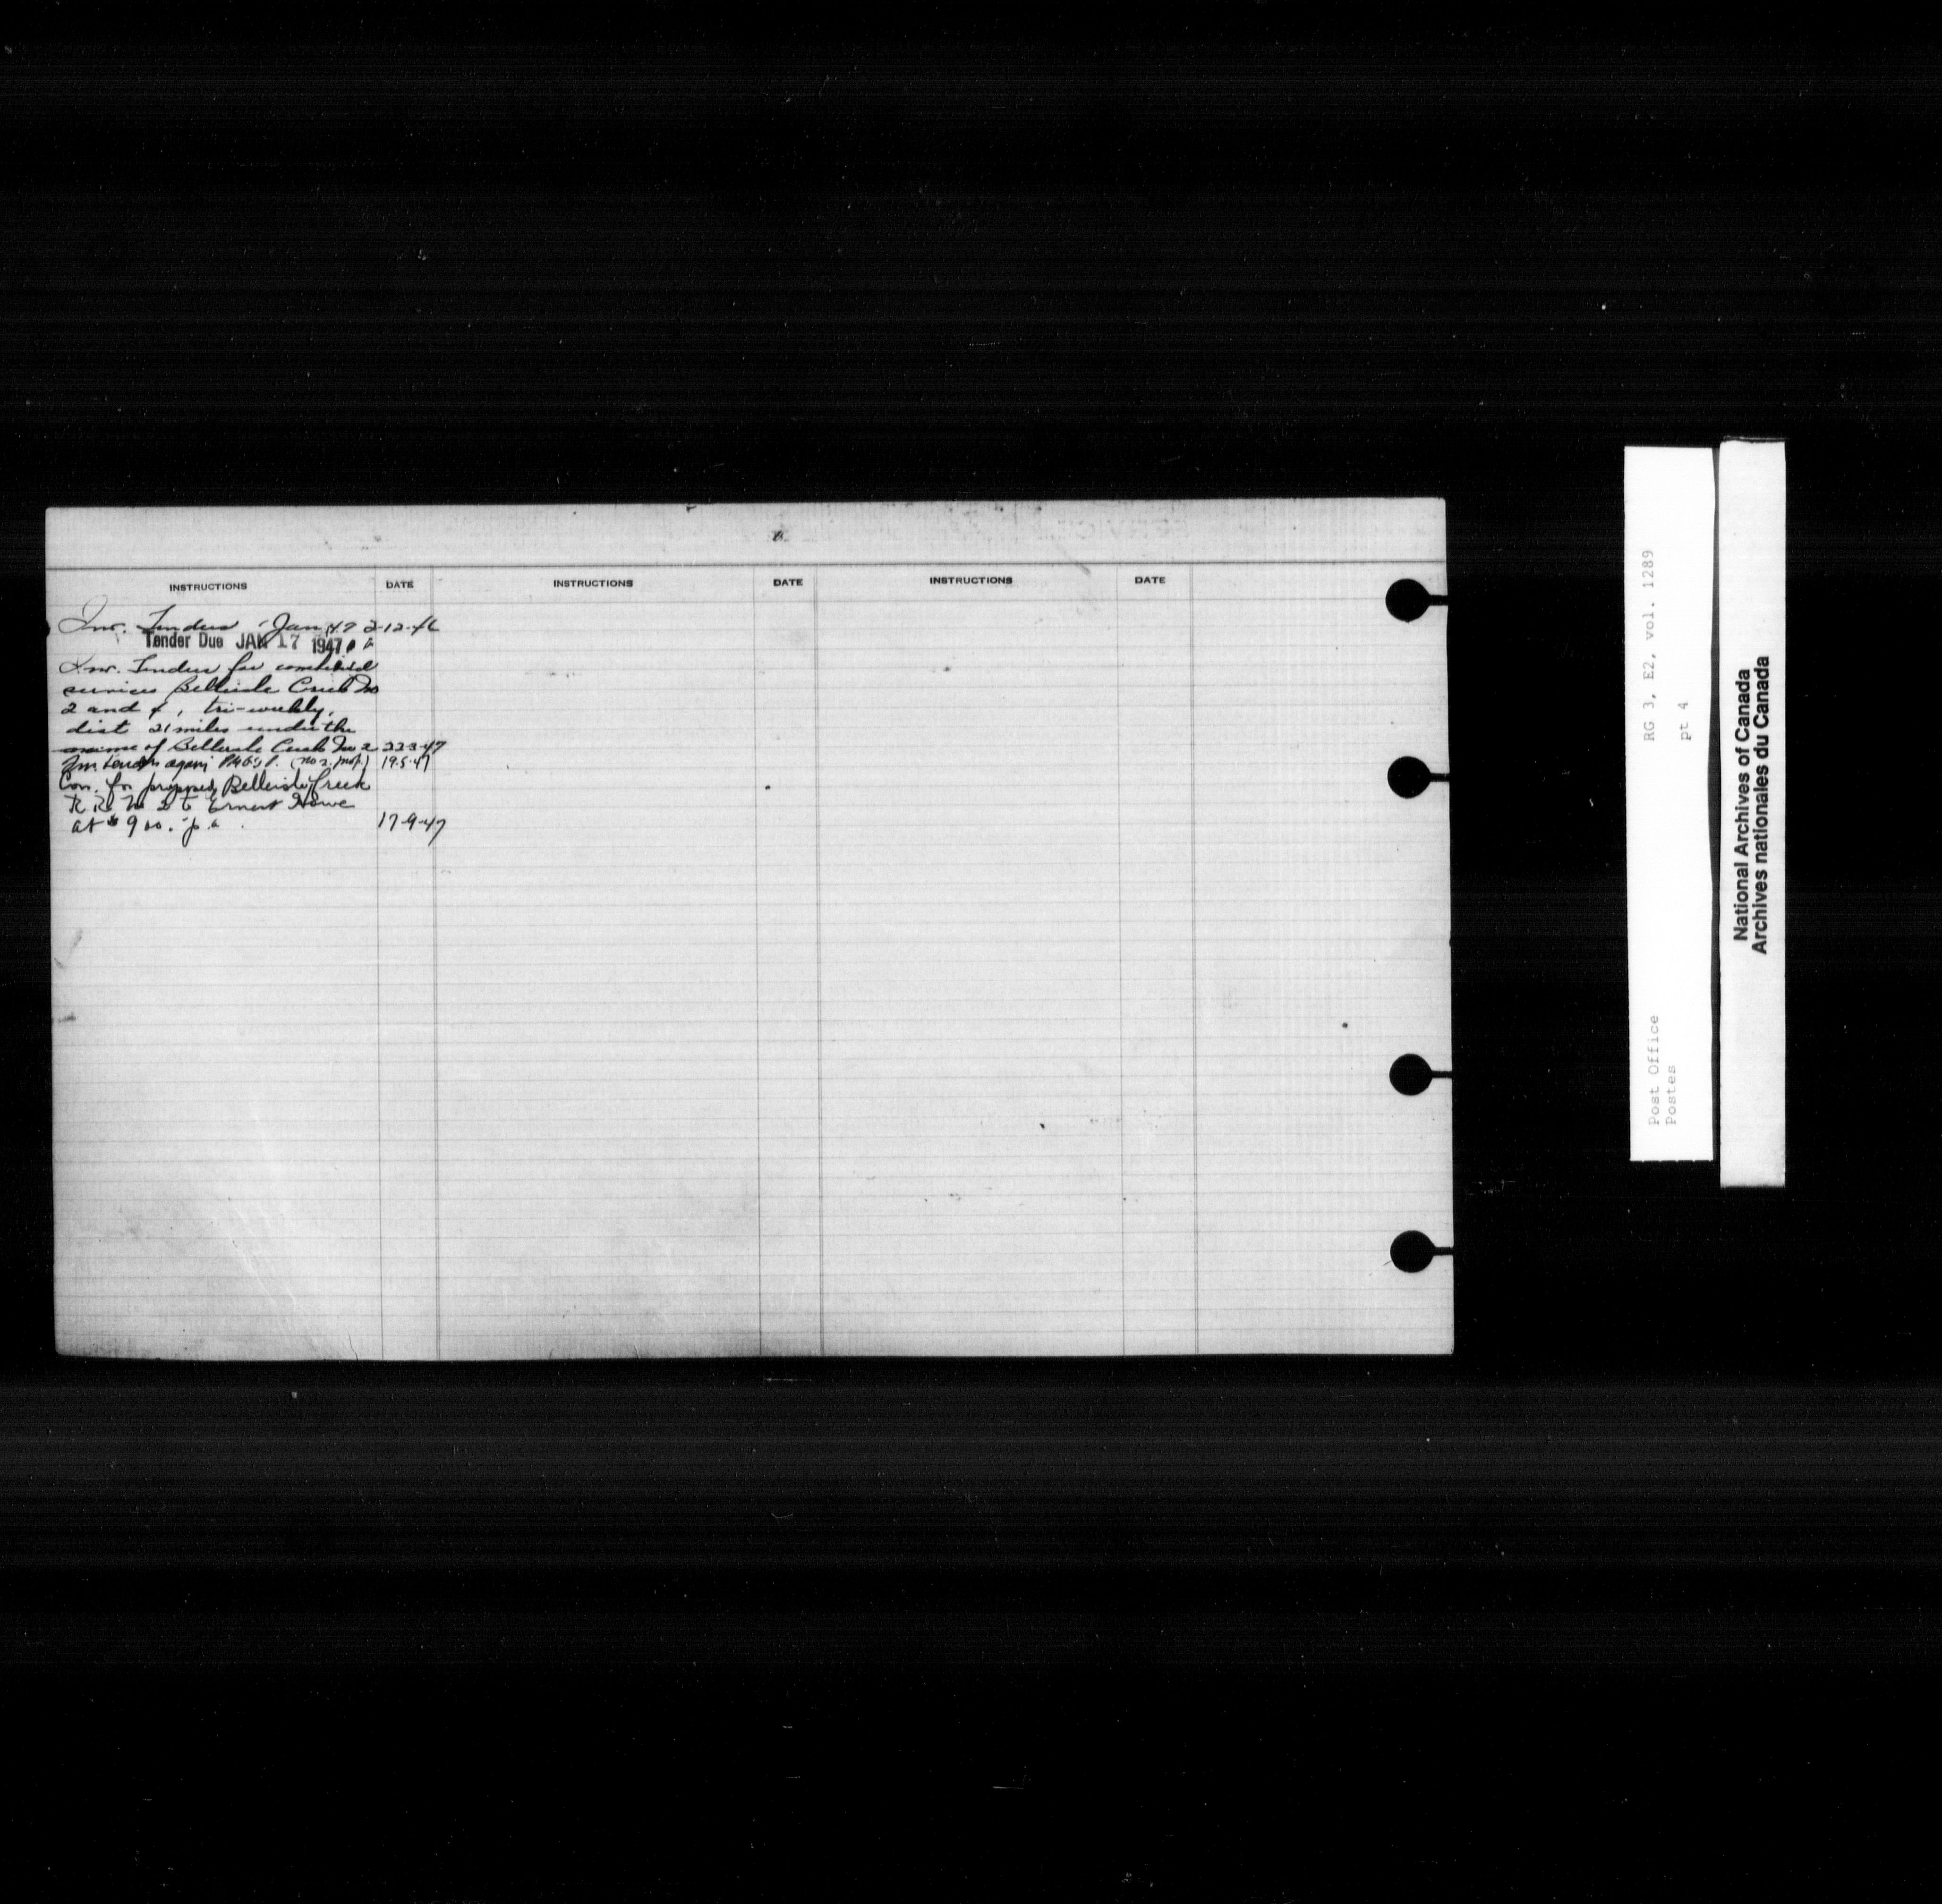 INSTRUCTIONS DATE INSTRUCTIONS DATE INSTRUCTIONS DATE
Inv. Tenders Jan 47 2-12-46
Tender Due JAN 17 1947
Inv. Tenders for combined
services Belleisle Creek No
2 and 4, tri-weekly,
dist 21 miles under the
name of Belleisle Creek No 2 22-3-47
Inv. tenders again (No 2. 19-5-47
Con. for proposed Belleisle Creek
R R No 2 to Ernest Howe
at $900. p.a. 17-9-47
RG 3, E2, vol. 1289
pt 4
Post Office
Postes
National Archives of Canada
Archives nationales du Canada